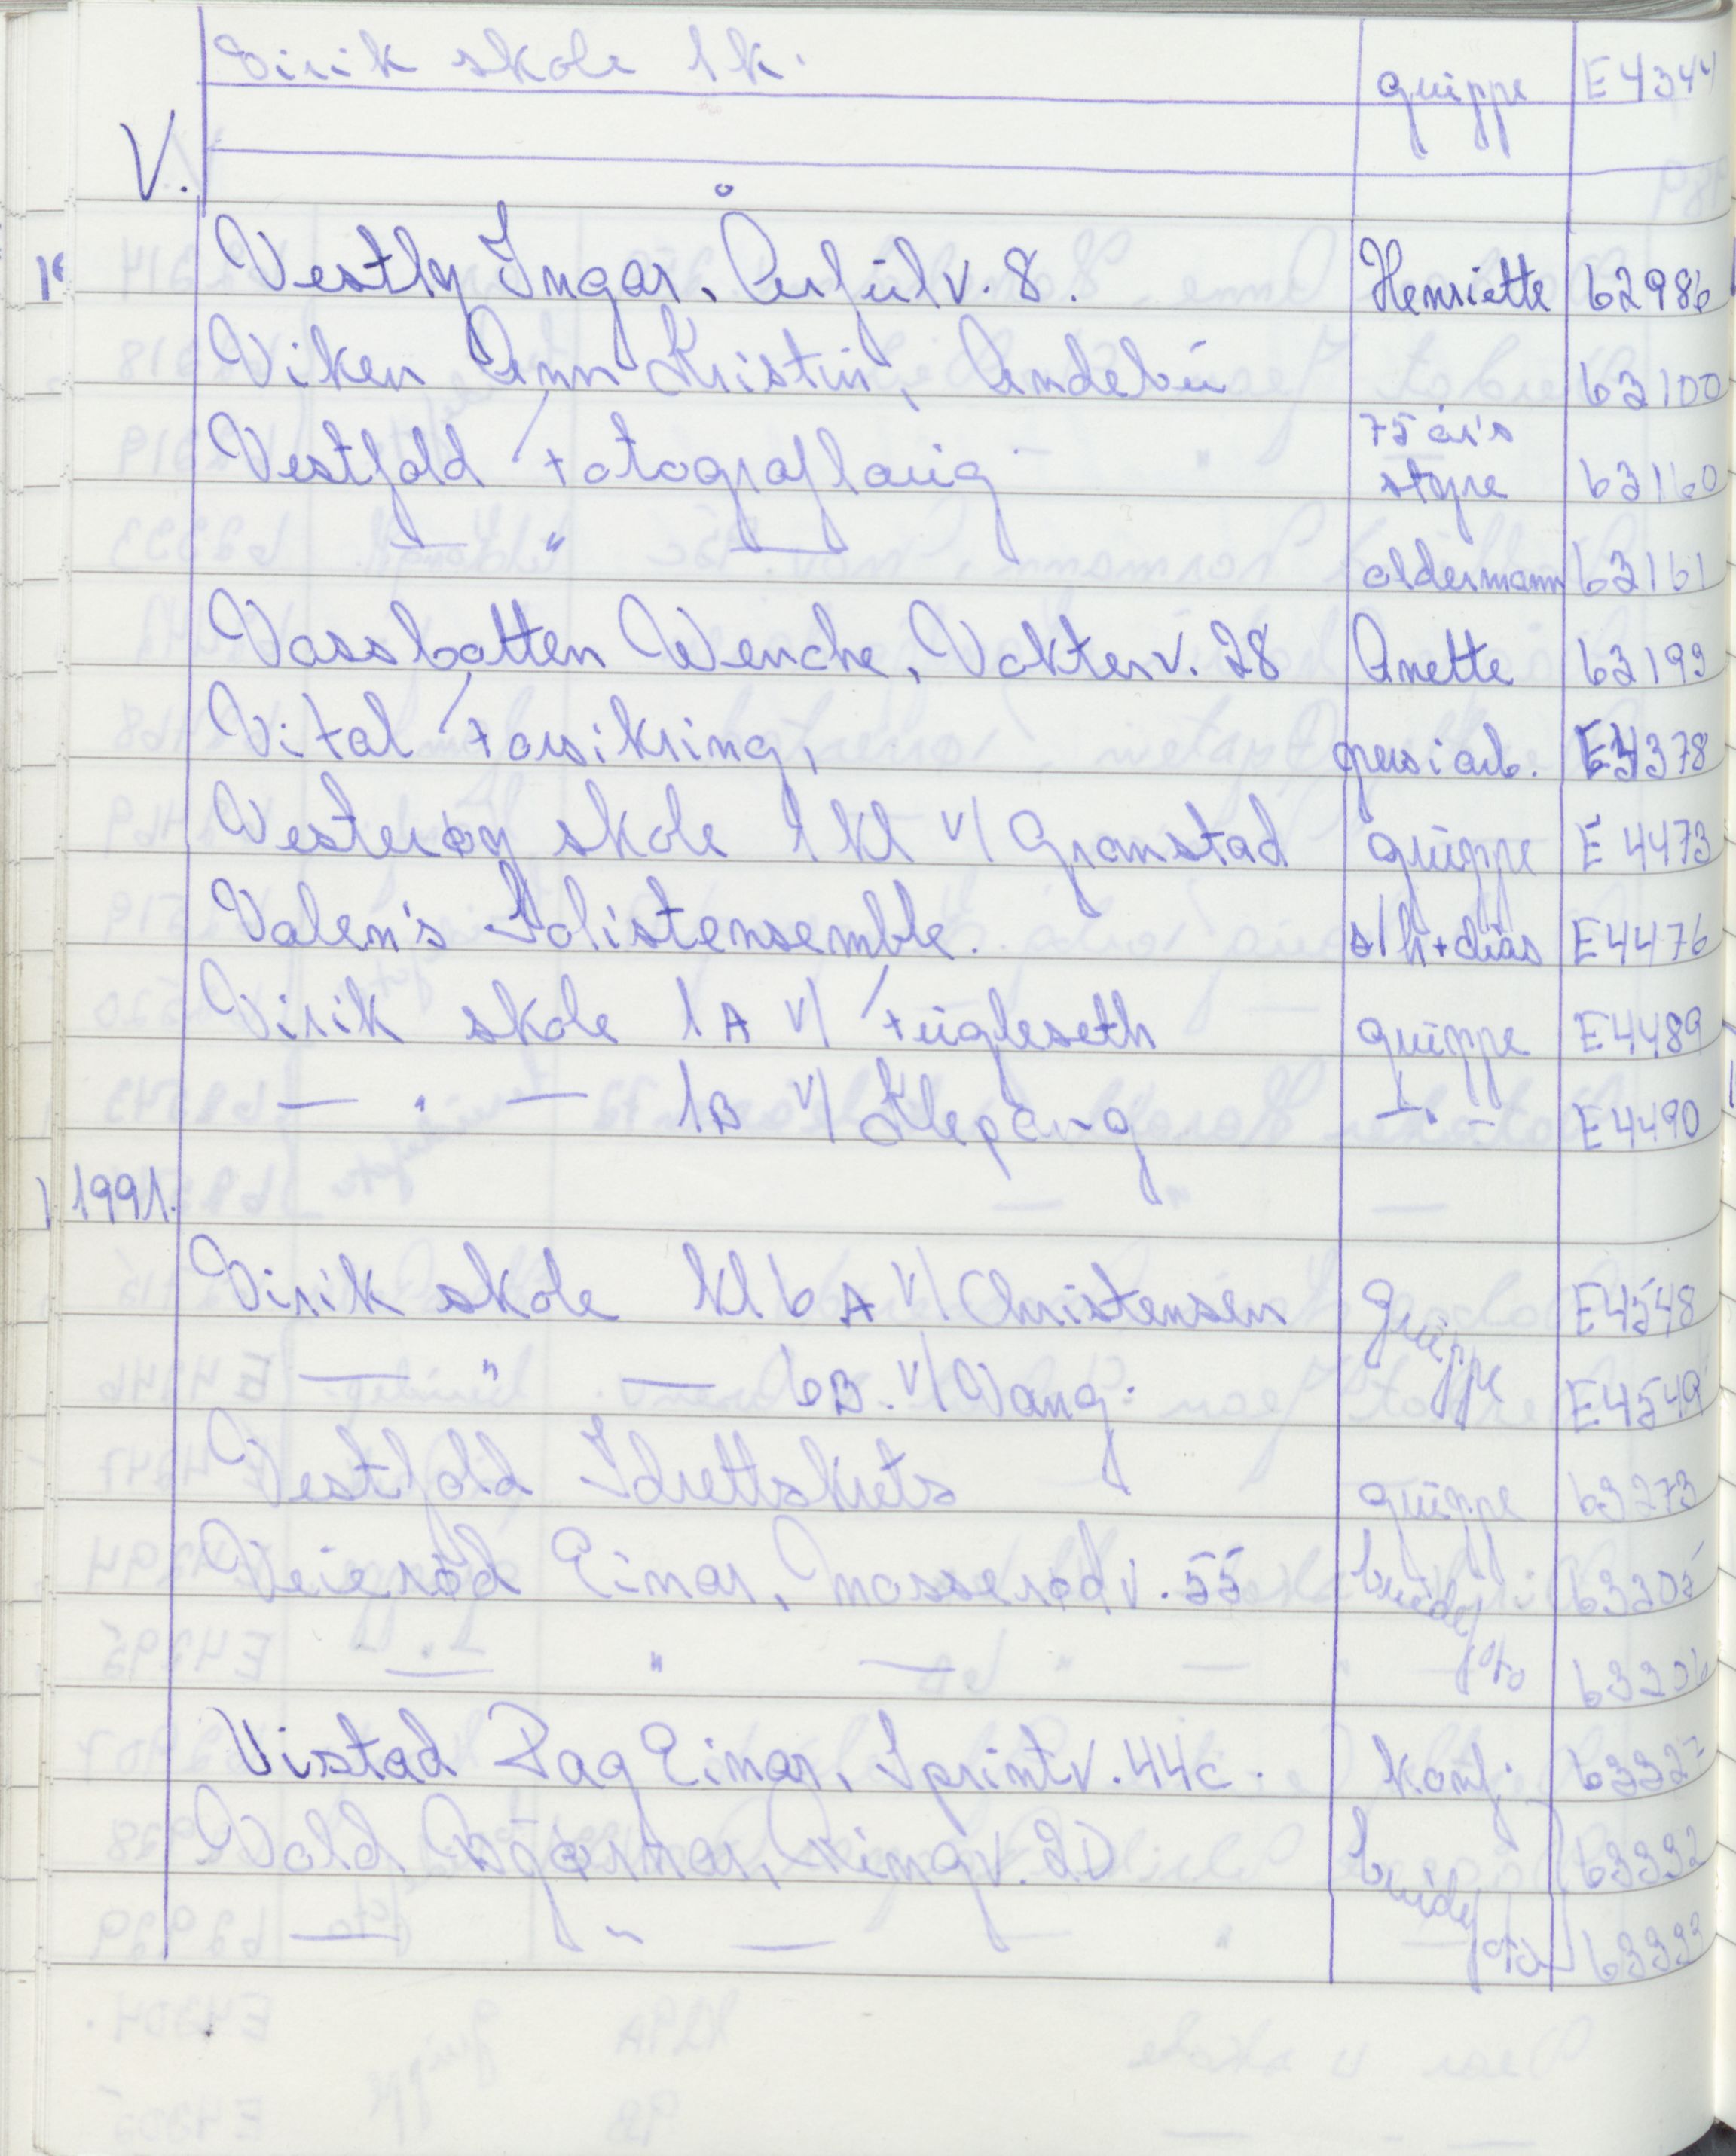 Virik skole 1k. gruppe E4344
V.
Vestly Ingar, Århjulv. 8. Henriette 62986
Viken Ann Kristin, Andebu 63100
75 års
Vestfold Fotograflaug styre 63160
— " — oldermann 63161
Vassbotten Wenche, Vokterv. 28 Anette 63193
Vital Forsikring, pers i arb. E4378
Vesterøy skole 1 kl v/ Granstad gruppe E4473
Valen's Solistensemble. s/h + dias E4476
Virik skole 1A v/ Fugleseth gruppe E4489
— " — 1B v/ Klepang — " — E4490
1991.
Virik skole kl 6A v/ Christensen gruppe E4548
— " — 6B. v/ Vang. E4549
Vestfold Idrettskrets gruppe 63273
Veierød Einar, Mosserødv. 55 brudefoto 63305
— " — 63306
Vistad Dag Einar, Sprintv. 44c. konf. 63327
Vold Bjørnar, Ringv. 20 brudefoto 63332
— " — 63333